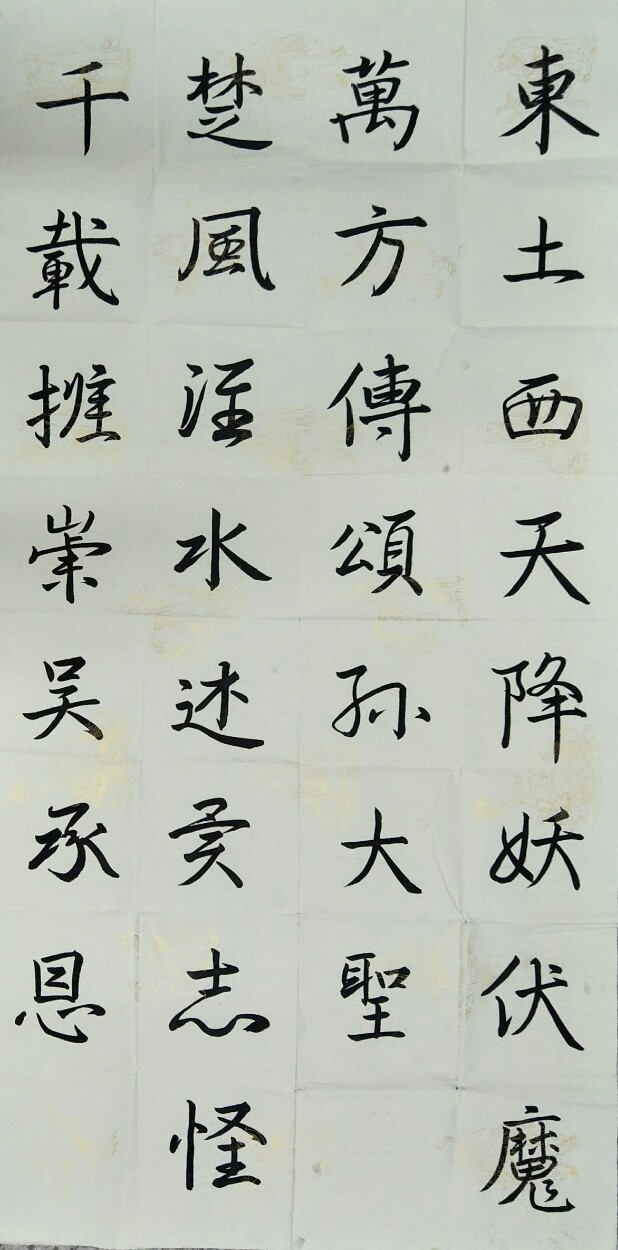 東土西天降妖伏魔
萬方傳頌孙大聖
楚風淮水述異志怪
千載推崇吴承恩